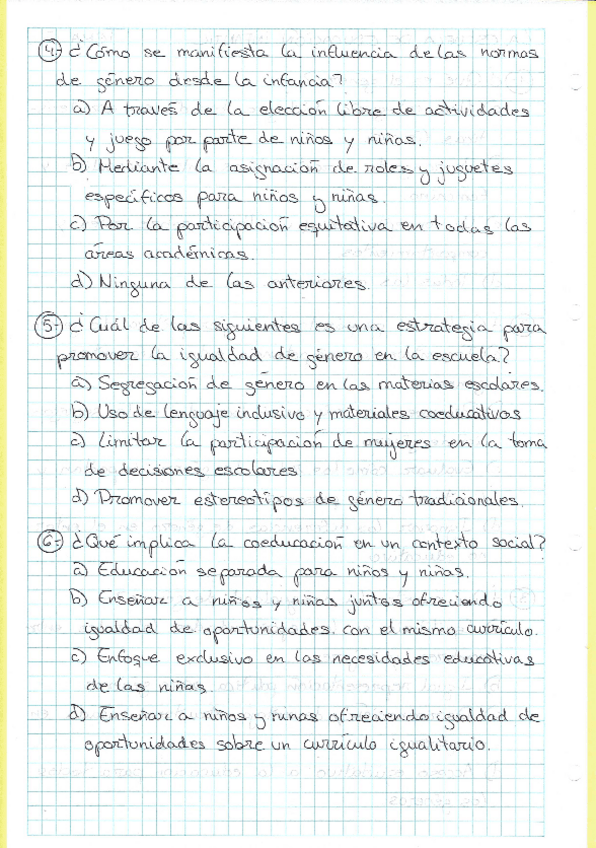 4- ¿Cómo se manifiesta la influencia de las normas
de género desde la infancia?
a) A través de la elección libre de actividades
y juego por parte de niños y niñas.
b) Mediante la asignación de roles y juguetes
específicos para niños y niñas.
c) Por la participación equitativa en todas las
áreas académicas.
d) Ninguna de las anteriores.
5- ¿Cuál de las siguientes es una estrategia para
promover la igualdad de género en la escuela?
a) Segregación de género en las materias escolares.
b) Uso de lenguaje inclusivo y materiales coeducativos
c) Limitar la participación de mujeres en la toma
de decisiones escolares
d) Promover estereotipos de género tradicionales.
6- ¿Qué implica la coeducación en un contexto social?
a) Educación separada para niños y niñas.
b) Enseñar a niños y niñas juntos ofreciendo
igualdad de oportunidades. con el mismo currículo.
c) Enfoque exclusivo en las necesidades educativas
de las niñas.
d) Enseñar a niños y runas ofreciendo igualdad de
oportunidades sobre un currículo igualitario.